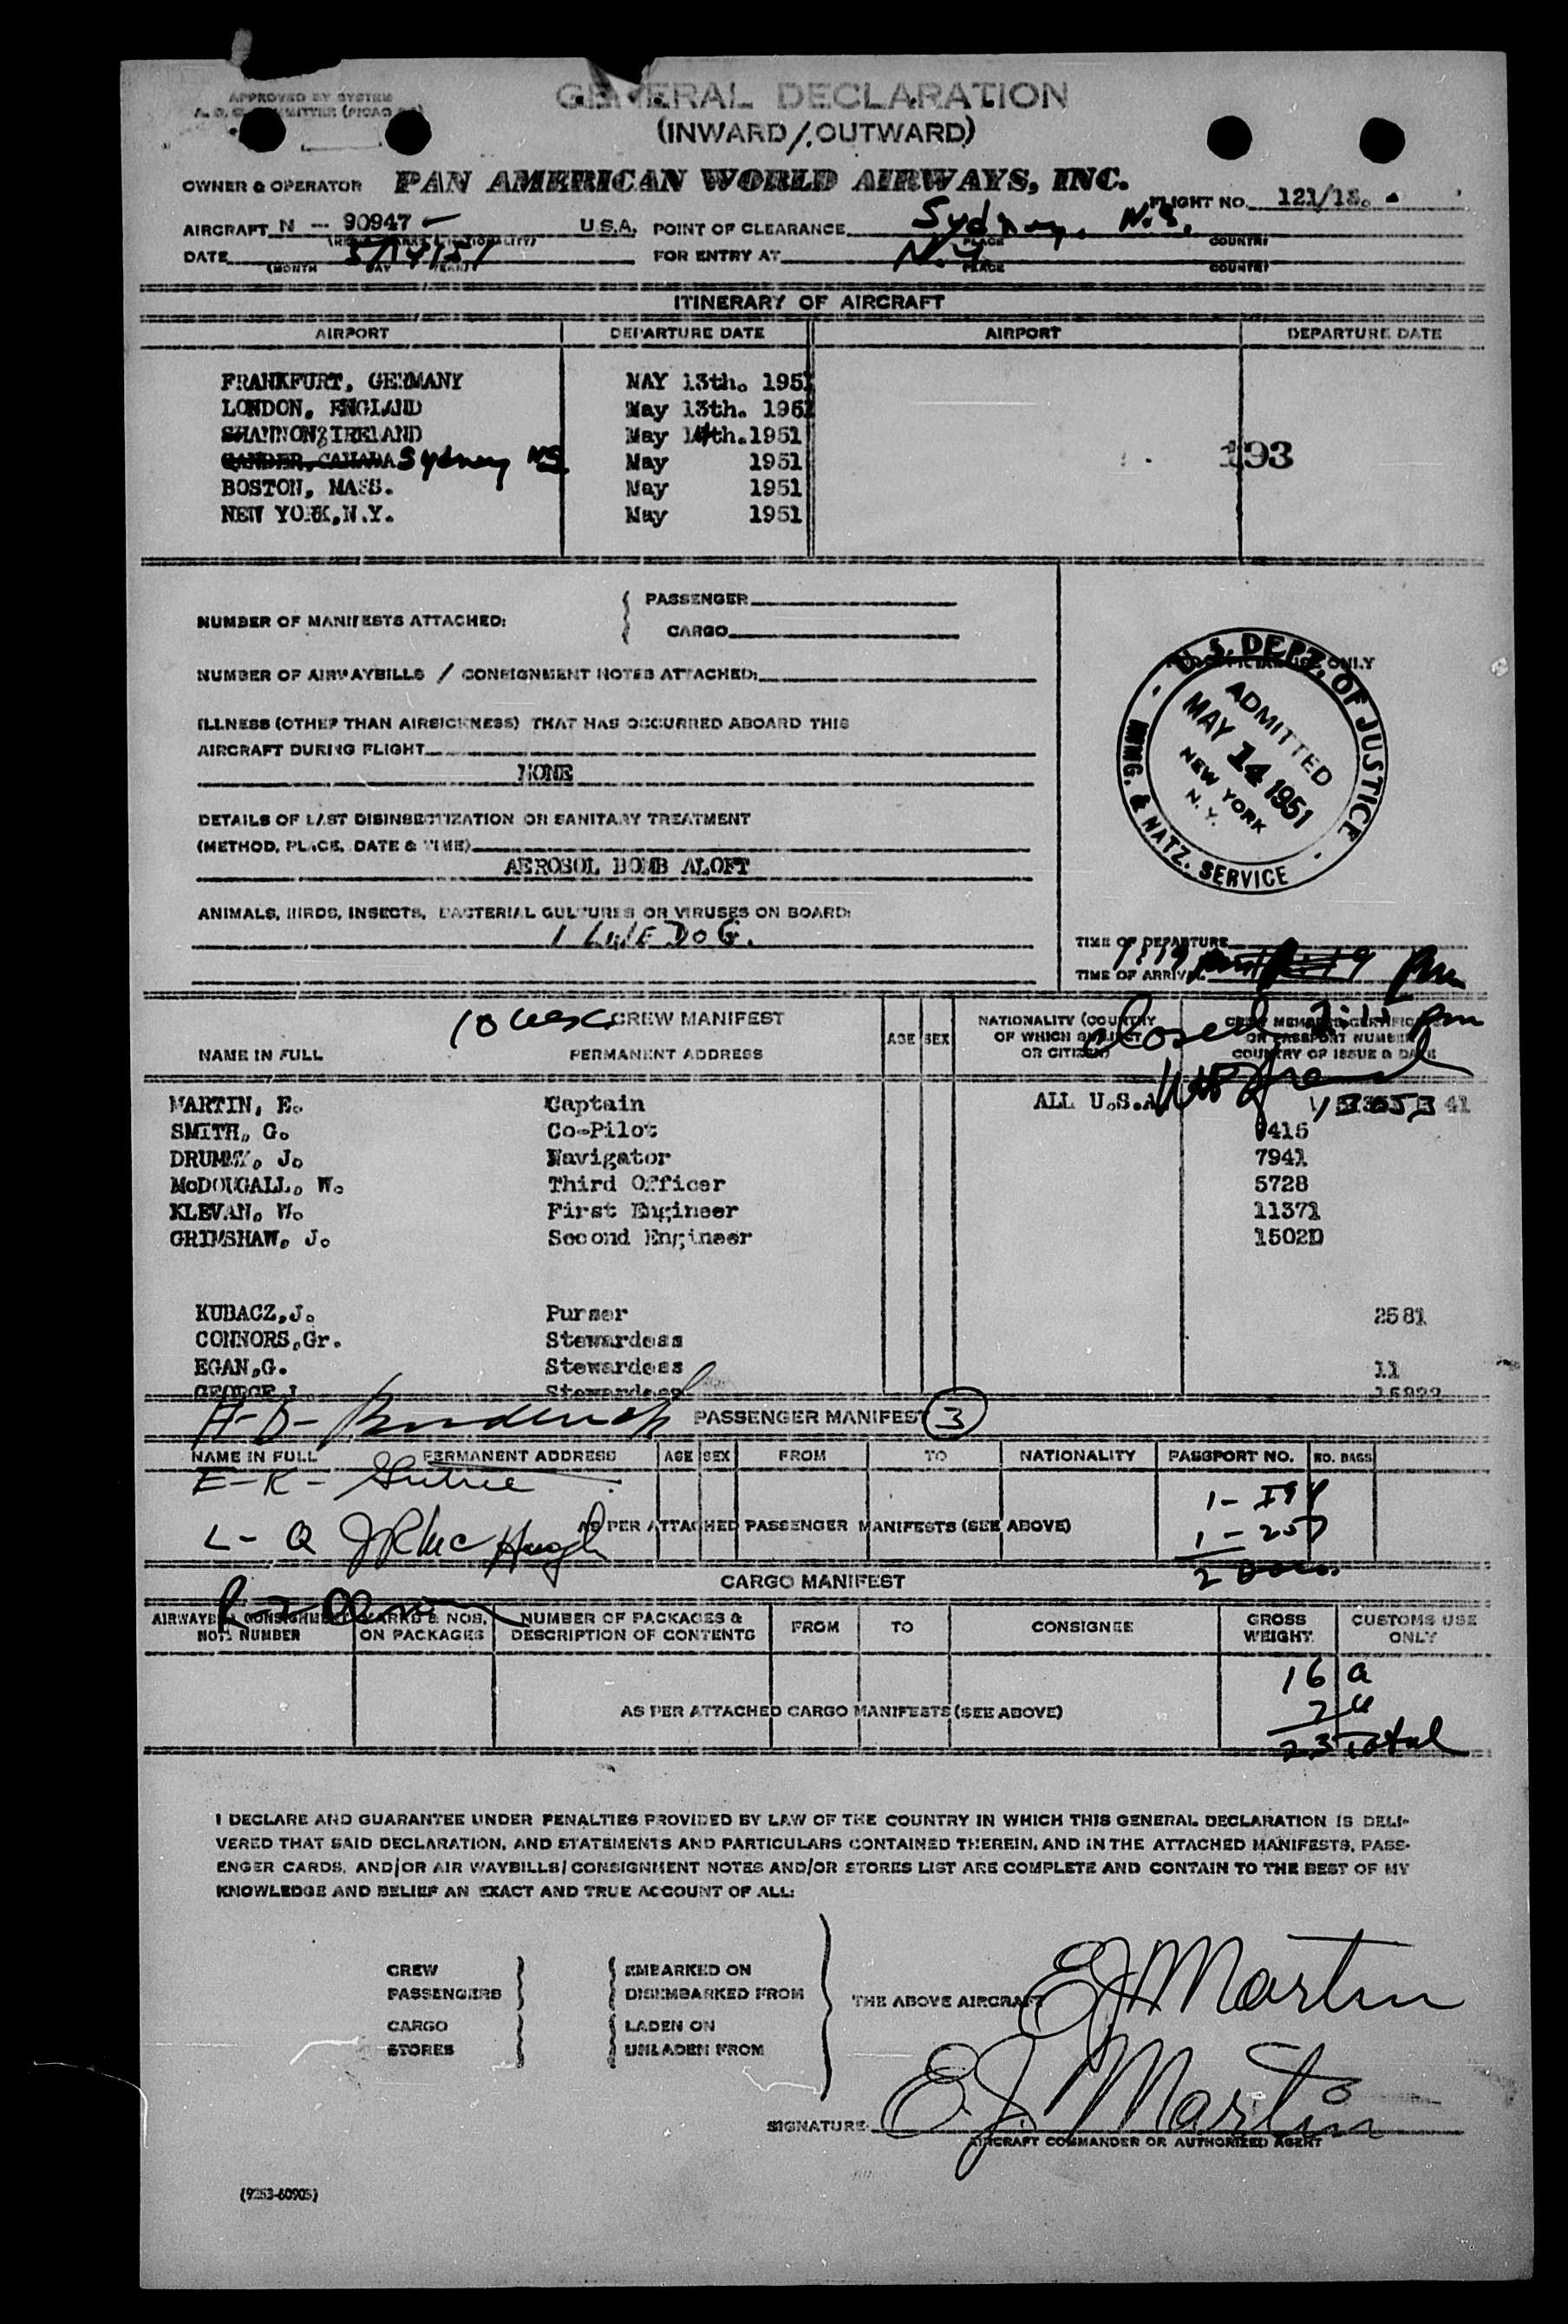 APPROVED BY SYSTEM
GENERAL DECLARATION
(INWARD/OUTWARD)
OWNER & OPERATOR PAN AMERICAN WORLD AIRWAYS, INC.
FLIGHT NO. 121/13.
AIRCRAFT N - 90947 U.S.A. POINT OF CLEARANCE Sydney, N.S.
PLACE COUNTRY
DATE 5/14/51 FOR ENTRY AT N.Y.
(MONTH DAY YEAR) PLACE COUNTRY
ITINERARY OF AIRCRAFT
AIRPORT DEPARTURE DATE AIRPORT DEPARTURE DATE
FRANKFURT, GERMANY MAY 13th. 1951
LONDON, ENGLAND May 13th. 1951
SHANNON, IRELAND May 14th. 1951
GANDER, CANADA Sydney NS. May 1951
193
BOSTON, MASS. May 1951
NEW YORK, N.Y. May 1951
NUMBER OF MANIFESTS ATTACHED: { PASSENGER
CARGO
NUMBER OF AIRWAYBILLS / CONSIGNMENT NOTES ATTACHED:
ILLNESS (OTHER THAN AIRSICKNESS) THAT HAS OCCURRED ABOARD THIS
AIRCRAFT DURING FLIGHT
NONE
DETAILS OF LAST DISINSECTIZATION OR SANITARY TREATMENT
(METHOD, PLACE, DATE & TIME)
AEROSOL BOMB ALOFT
ANIMALS, BIRDS, INSECTS, BACTERIAL CULTURES OR VIRUSES ON BOARD:
1 LIVE DOG.
USE ONLY
U.S. DEPT. OF JUSTICE
ADMITTED
MAY 14 1951
NEW YORK
N.Y.
IMMG. & NATZ. SERVICE
TIME OF DEPARTURE
TIME OF ARRIVAL pm
10 CREW MANIFEST
NAME IN FULL PERMANENT ADDRESS AGE SEX NATIONALITY (COUNTRY OF WHICH SUBJECT OR CITIZEN) CREW MEMBERS CERTIFICATE OR PASSPORT NUMBER COUNTRY OF ISSUE & DATE
Closed pm
MARTIN, E. Captain ALL U.S.A.
SMITH, G. Co-Pilot
DRUMMY, J. Navigator 7941
McDOUGALL, W. Third Officer 5728
KLEVAN, W. First Engineer 11371
GRIMSHAW, J. Second Engineer 1502D
KUBACZ, J. Purser 2581
CONNORS, Gr. Stewardess
EGAN, G. Stewardess 11
GEORGE J Stewardess
PASSENGER MANIFEST 3
NAME IN FULL PERMANENT ADDRESS AGE SEX FROM TO NATIONALITY PASSPORT NO. NO. BAGS
E-K-
AS PER ATTACHED PASSENGER MANIFESTS (SEE ABOVE)
L- Q JR Mc Hugh
CARGO MANIFEST
AIRWAYBILL CONSIGNMENT NOTE NUMBER MARKS & NOS. ON PACKAGES NUMBER OF PACKAGES & DESCRIPTION OF CONTENTS FROM TO CONSIGNEE GROSS WEIGHT CUSTOMS USE ONLY
16 a
7 u
23 Total
AS PER ATTACHED CARGO MANIFESTS (SEE ABOVE)
I DECLARE AND GUARANTEE UNDER PENALTIES PROVIDED BY LAW OF THE COUNTRY IN WHICH THIS GENERAL DECLARATION IS DELI-
VERED THAT SAID DECLARATION, AND STATEMENTS AND PARTICULARS CONTAINED THEREIN, AND IN THE ATTACHED MANIFESTS, PASS-
ENGER CARDS, AND/OR AIR WAYBILLS/CONSIGNMENT NOTES AND/OR STORES LIST ARE COMPLETE AND CONTAIN TO THE BEST OF MY
KNOWLEDGE AND BELIEF AN EXACT AND TRUE ACCOUNT OF ALL:
CREW EMBARKED ON
PASSENGERS DISEMBARKED FROM
THE ABOVE AIRCRAFT EJ Martin
CARGO LADEN ON
STORES UNLADEN FROM
SIGNATURE: E.J. Martin
AIRCRAFT COMMANDER OR AUTHORIZED AGENT
(9253-60905)